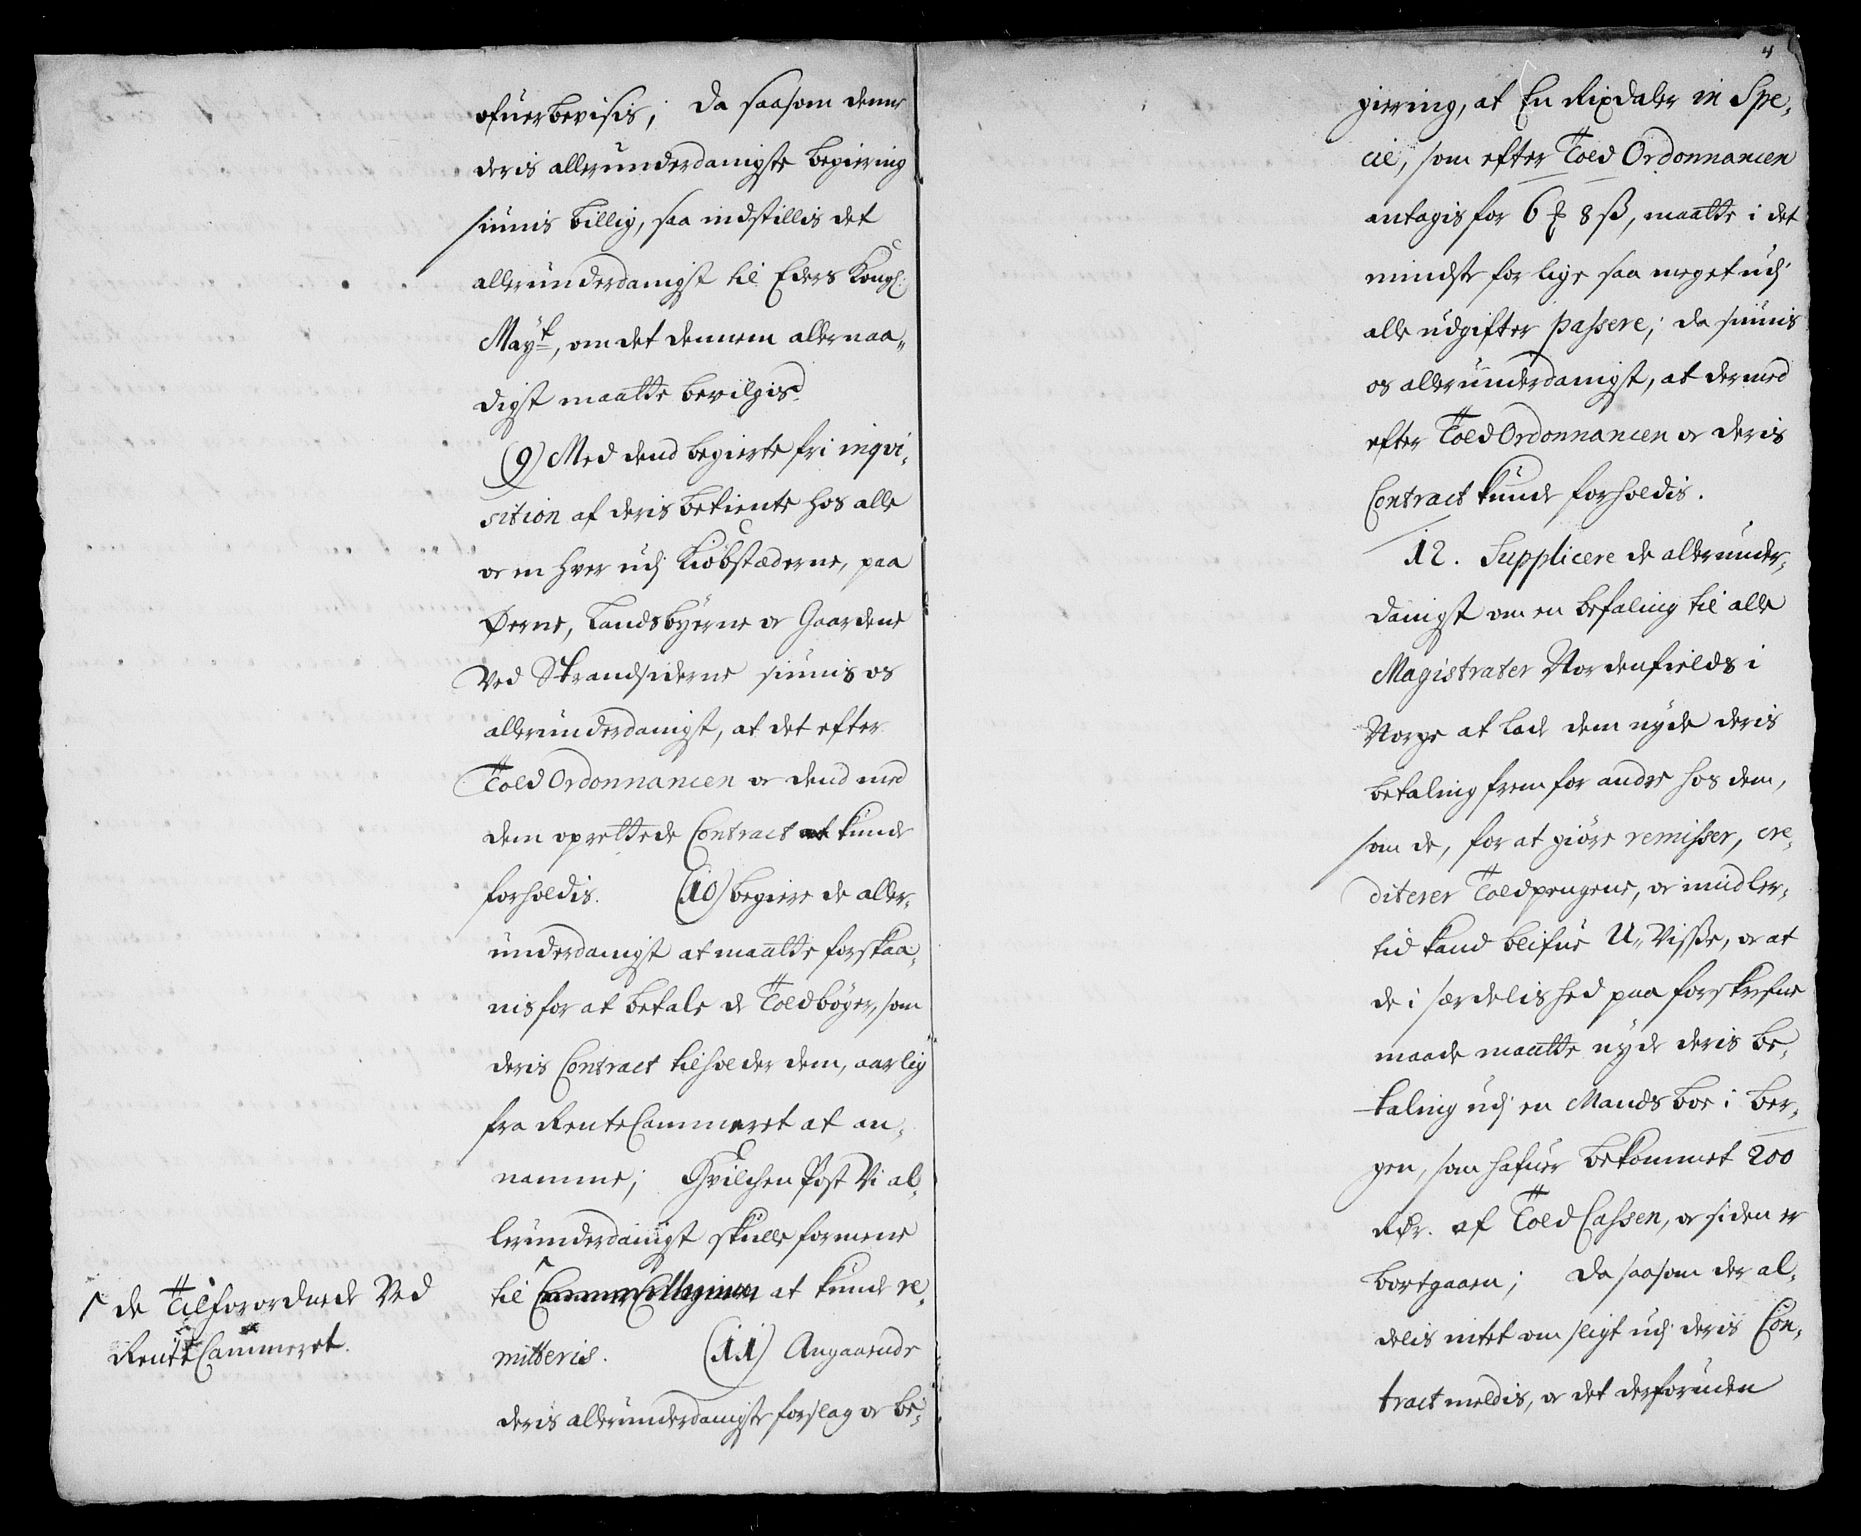 ofuerbevisis; Da saasom denne
deris allerunderdanigste begiering
siunis billig, saa indstillis det
allerunderdanigst til Eders Kongl:
Mayt, om det dennem allernaa„
digst maatte bevilgis.
(9) Med dend begierte fri inqvi„
sition af deris betiente hos alle
oc en hver udj Kiøbstæderne, paa
Øerne, Landsbyerne oc Gaardene
Ved Strandsiderne siunis os
allerunderdanigst, at det efter
Told Ordonnancen oc dend med
dem oprettede Contract kunde
forholdis. (10) begiere de aller„
underdanigst at maatte forskaa„
nis for at betale de Toldbøger, som
deris Contract tilholder dem, aarlig
fra RenteCammeret at an„
namme; Hvilchen Post Vi al„
lerunderdanigst skulle formene
til CammerCollegium at kunde re„
mitteris. (11) Angaaende
deris allerunderdanigste forslag oc be„
de Tilforordnede Ved
RenteCammeret.
4
giering, at En Rixdaler in Spe„
cie, som efter Told Ordonnancen
antagis for 6 ꝑ 8 ß, maatte i det
mindste for lige saa meget udj
alle udgifter passere; da siunis
os allerunderdanigst, at dermed
efter Told Ordonnancen oc deris
Contract kunde forholdis.
12. Supplicere de allerunder„
danigst om en befaling til alle
Magistrater Nordenfields i
Norge at lade dem nyde deris
betaling frem for andre hos dem,
som de, for at giøre remisser, cre„
diterer Toldpengene, oc imidler„
tid kand blifue U„visse, oc at
de i særdelished paa forskrefne
maade maatte nyde deris be„
taling udj en Mands boe i Ber„
gen, som hafuer bekommet 200
Rdr. af Told Cassen, oc siden er
bortgaaen; Da saasom der al„
delis intet om sligt udj deris Con„
tract meldis, oc det desforuden